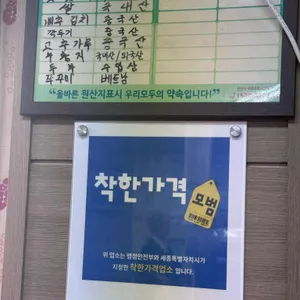 쌀 국내산
배추김치 중국산
깍두기 중국산
고춧가루 중국산
국내산/외국산
두부 수입산
쭈꾸미 베트남
"올바른 원산지표시 우리모두의 약속입니다!"
착한가격
모범
위 업소는 행정안전부와 세종특별자치시가
지정한 착한가격업소 입니다.